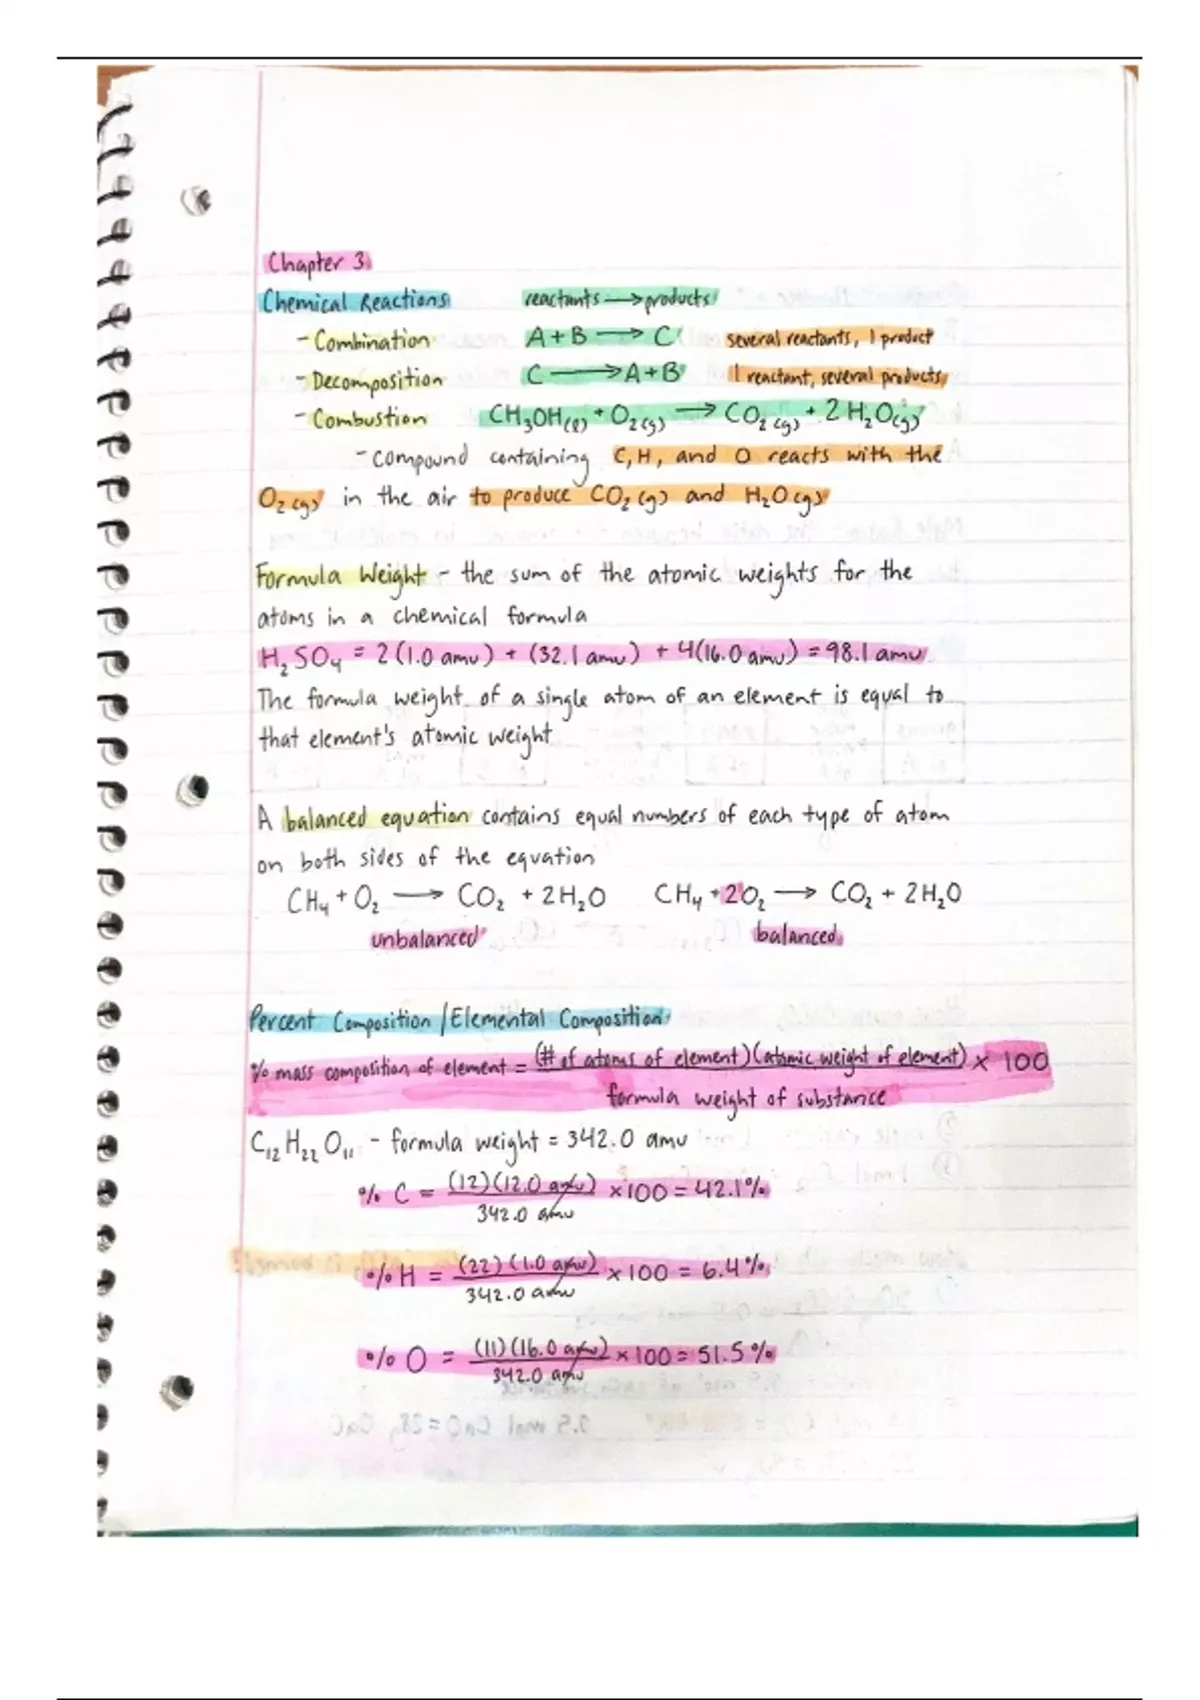 Chapter 3
Chemical Reactions reactants → products
- Combination A + B → C several reactants, 1 product
- Decomposition C → A + B 1 reactant, several products
- Combustion CH₃OH(l) + O₂(g) → CO₂(g) + 2 H₂O(g)
- compound containing C, H, and O reacts with the
O₂(g) in the air to produce CO₂(g) and H₂O(g)
Formula Weight - the sum of the atomic weights for the
atoms in a chemical formula
H₂SO₄ = 2(1.0 amu) + (32.1 amu) + 4(16.0 amu) = 98.1 amu
The formula weight of a single atom of an element is equal to
that element's atomic weight
A balanced equation contains equal numbers of each type of atom
on both sides of the equation
CH₄ + O₂ → CO₂ + 2H₂O CH₄ + 2O₂ → CO₂ + 2H₂O
unbalanced balanced
Percent Composition / Elemental Composition
% mass composition of element = (# of atoms of element)(atomic weight of element) × 100
formula weight of substance
C₁₂H₂₂O₁₁ - formula weight = 342.0 amu
% C = (12)(12.0 amu) × 100 = 42.1%
342.0 amu
% H = (22)(1.0 amu) × 100 = 6.4%
342.0 amu
% O = (11)(16.0 amu) × 100 = 51.5%
342.0 amu